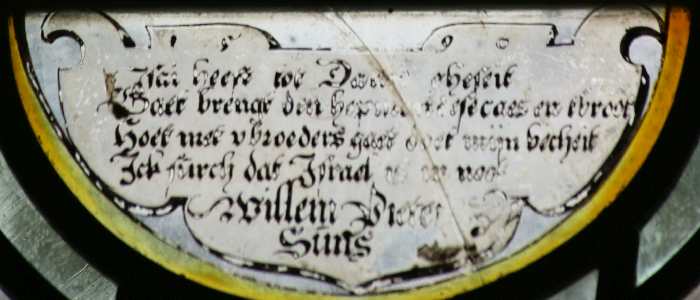 Isai heeft tot David gheseit
Gaet brengt den hopman dese caes en tbroot
Hoet met v broeders gaet doet mijn becheit
Ick surch dat Israel is in noot
Willem Pieter
Sijns